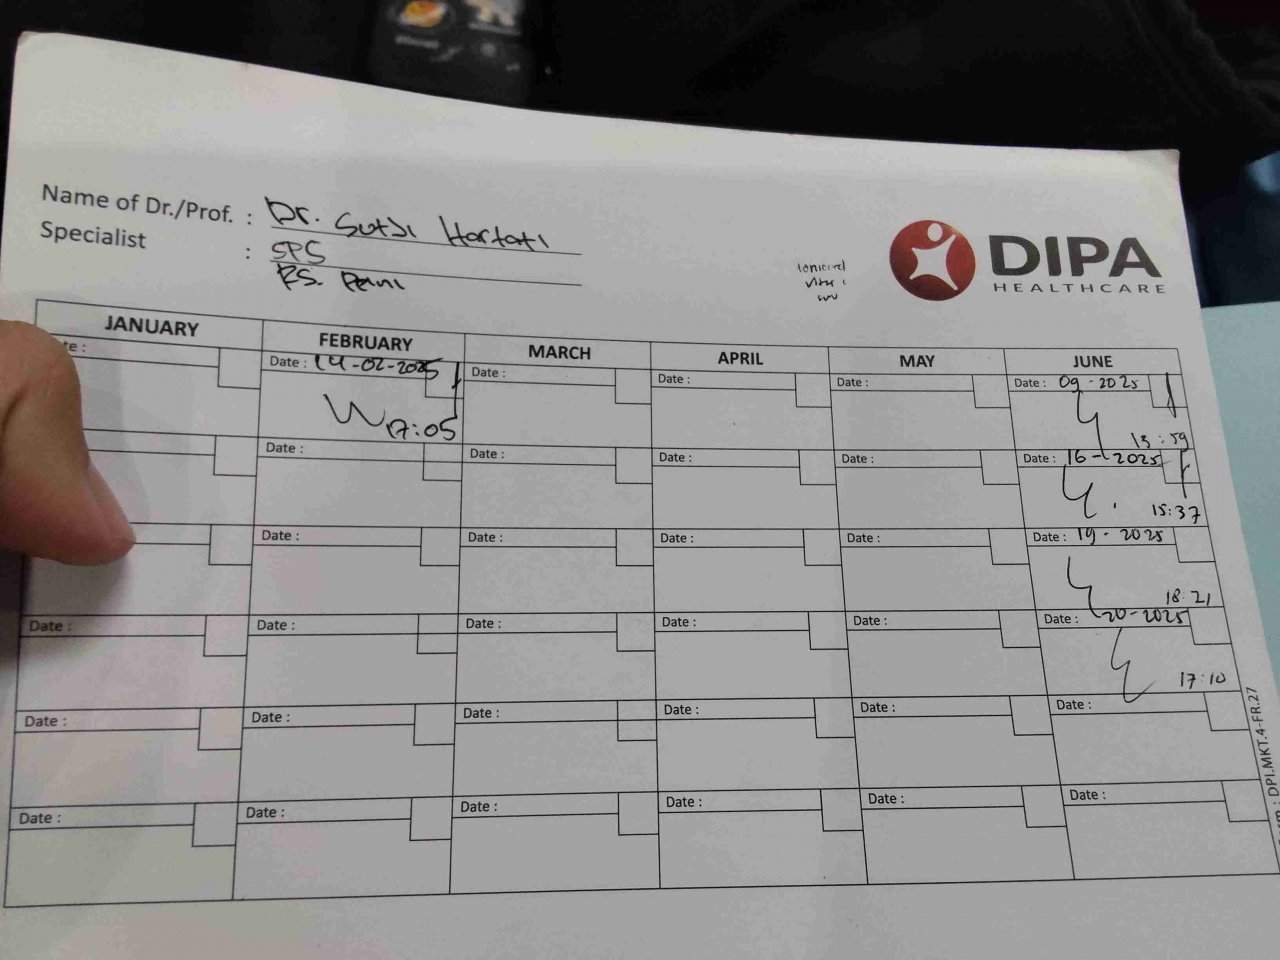 Name of Dr./Prof. : Dr. Sutji Hartati
Specialist : SPS
RS.
DIPA
HEALTHCARE
JANUARY FEBRUARY MARCH APRIL MAY JUNE
te : Date : 14-02-2025 Date : Date : Date : Date : 09 - 2025
17:05 13:59
Date : Date : Date : Date : Date : 16 - 2025
15:37
Date : Date : Date : Date : Date : 19 - 2025
18:21
Date : Date : Date : Date : Date : Date : 20-2025
17:10
Date : Date : Date : Date : Date : Date :
Date : Date : Date : Date : Date : Date :
: DPI.MKT.4-FR.27